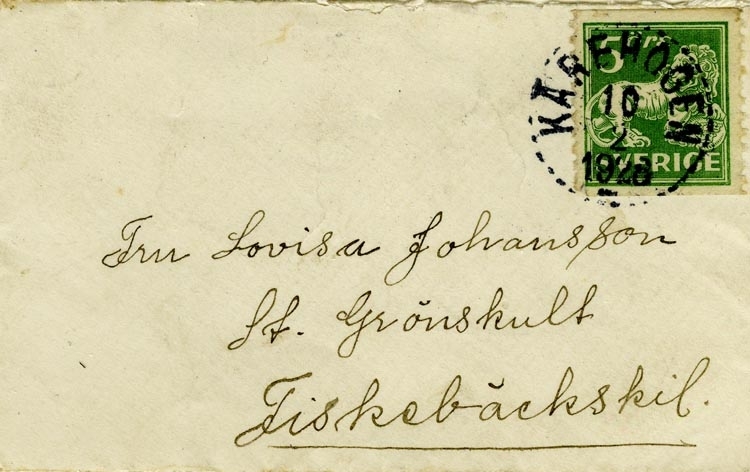 5 öre
KÄREHOGEN
10
2
1923
SVERIGE
Fru Lovisa Johansson
St. Grönskult
Fiskebäckskil.